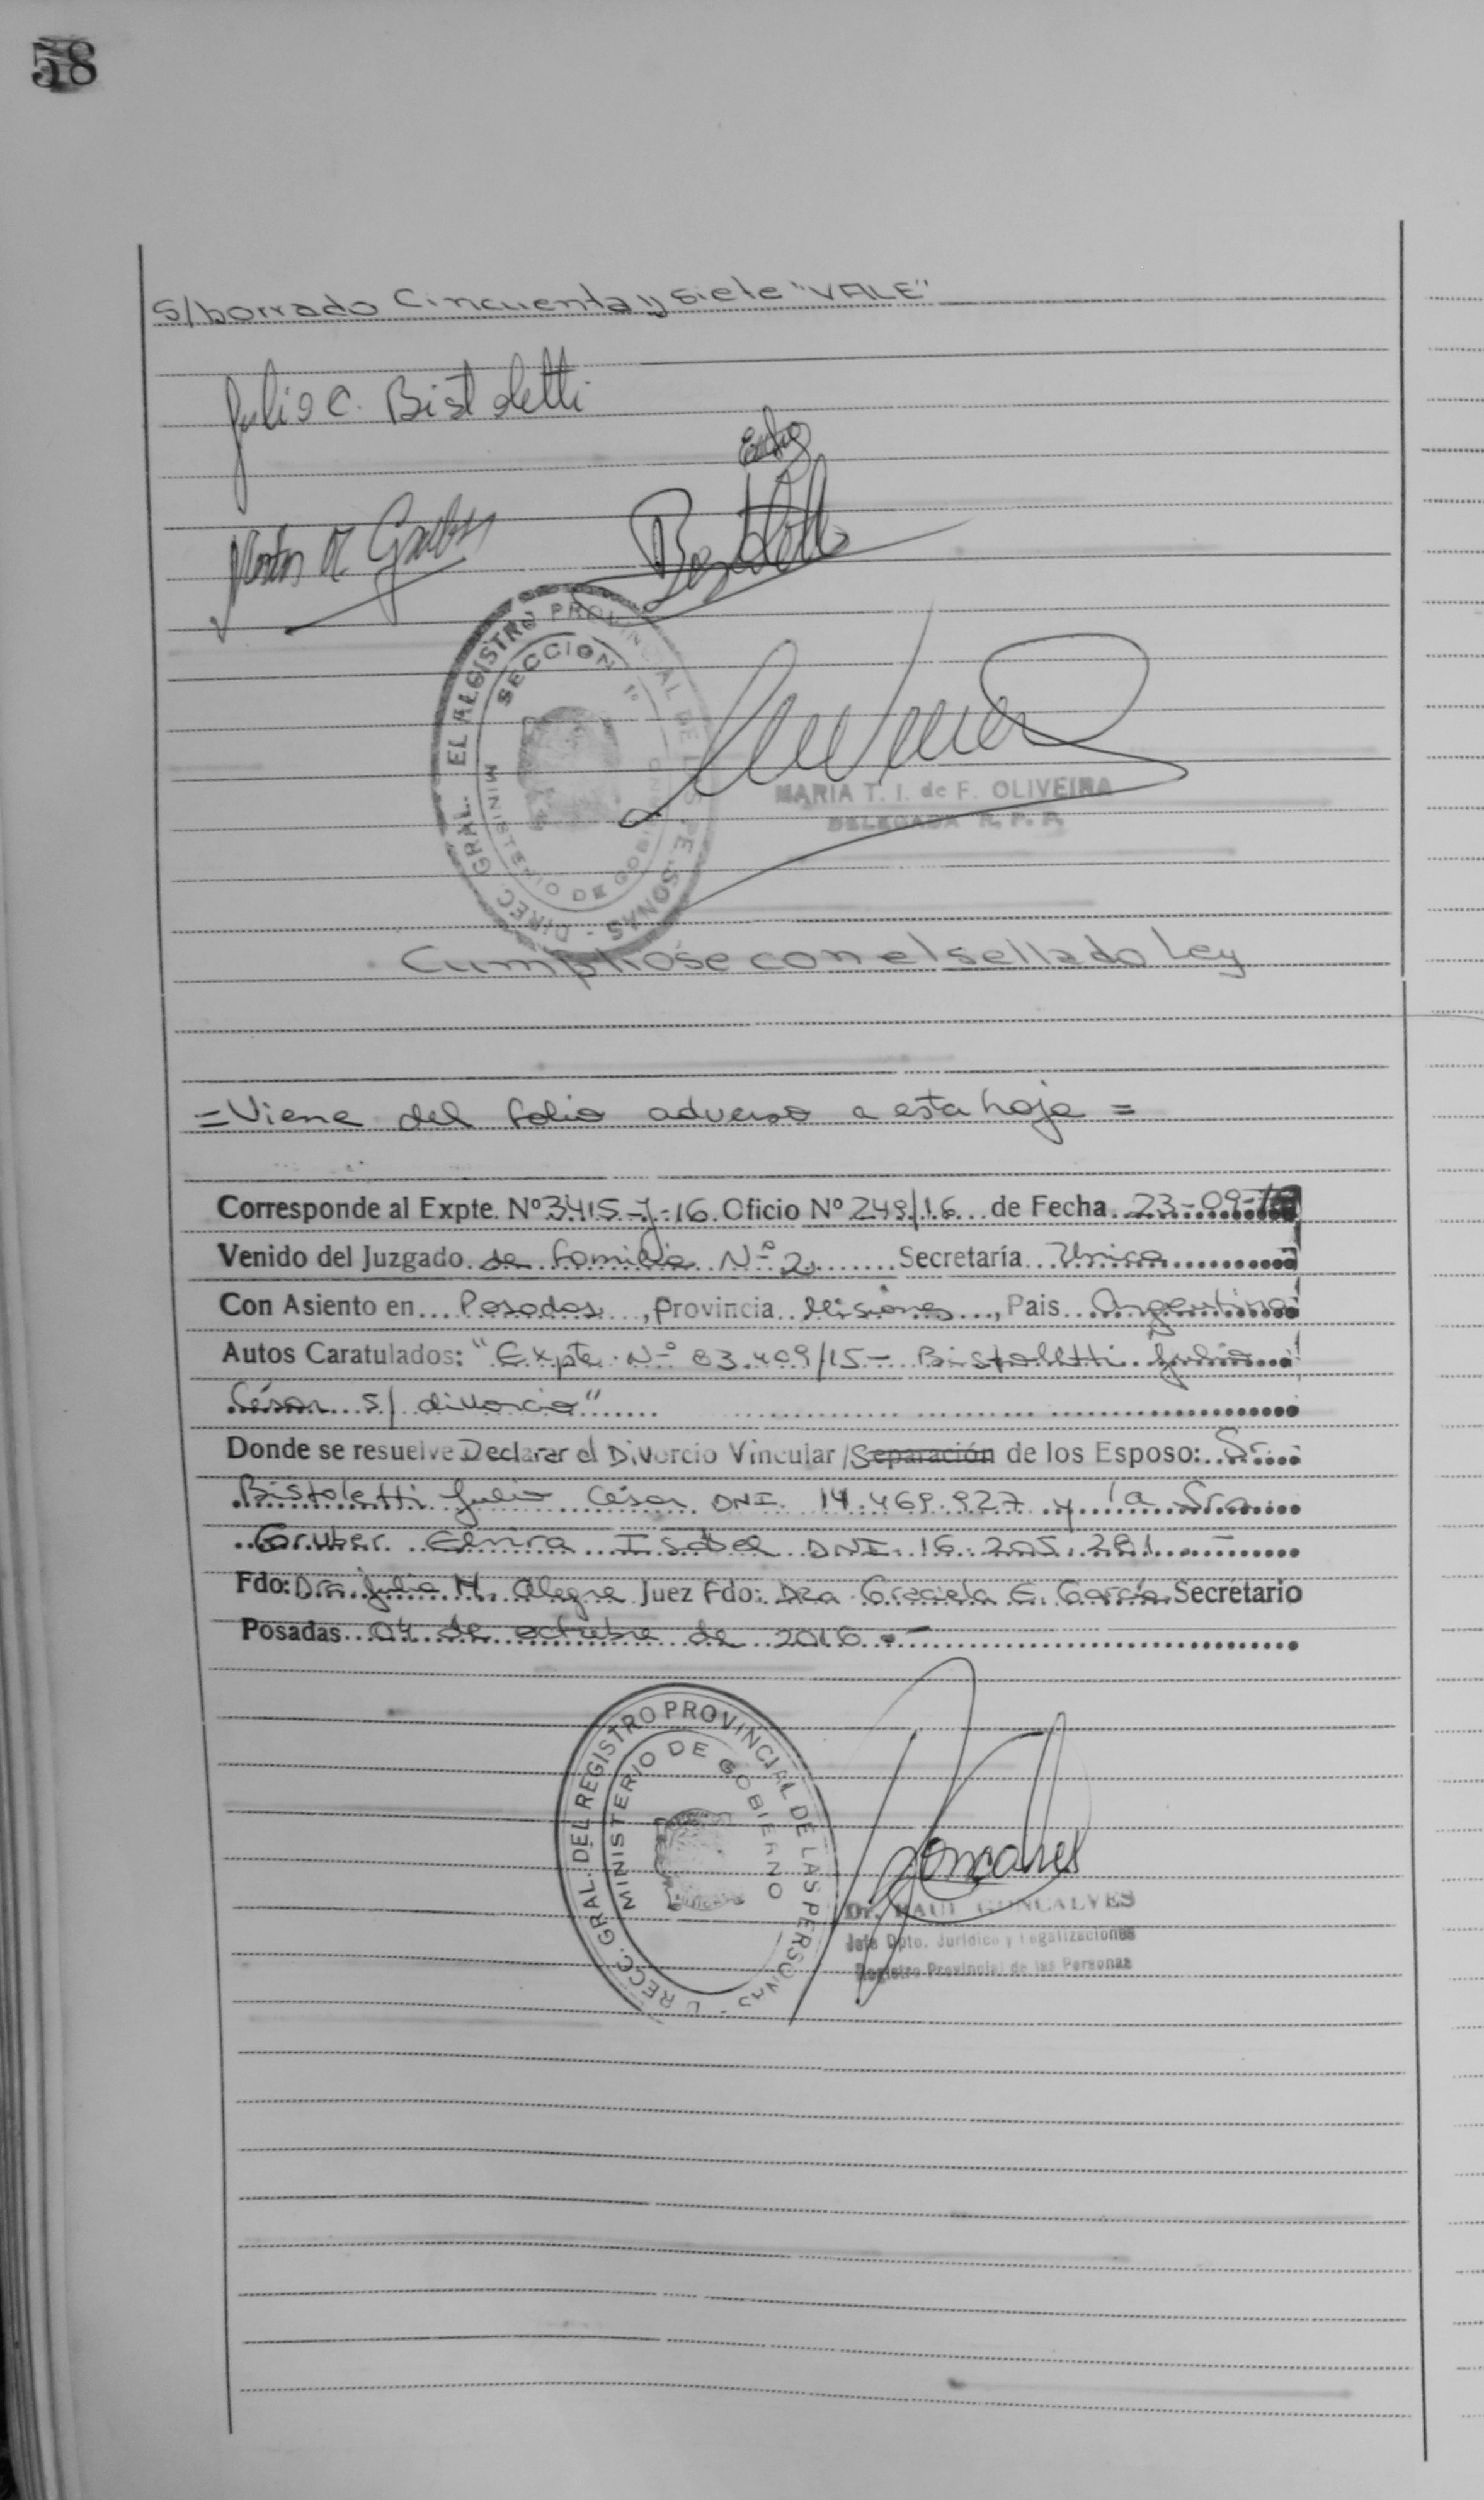 58
S/borrado Cincuenta y siete "VALE"
Julio C. Bistoletti
MARIA T. I. de F. OLIVEIRA
DELEGADA R. P. P.
DIREC. GRAL. DEL REGISTRO PROVINCIAL DE LAS PERSONAS
SECCION 1º
MINISTERIO DE GOBIERNO
Cumpliose con el sellado Ley
= Viene del folio adverso a esta hoja =
Corresponde al Expte. Nº 3415-J-16 Oficio Nº 249/16 de Fecha 23-09-16
Venido del Juzgado de Familia Nº 2 Secretaría Unica
Con Asiento en Posadas, Provincia Misiones, Pais Argentina
Autos Caratulados: "Expte. Nº 83.409/15 - Bistoletti Julio
César s/ divorcio"
Donde se resuelve Declarar el Divorcio Vincular/Separación de los Esposo: Sr.
Bistoletti Julio César DNI. 14.469.927 y la Sra.
Gruber Elnira Isabel DNI. 16.205.281.-
Fdo: Dra. Julia M. Alegre Juez Fdo: Dra Graciela E. García Secretario
Posadas 04 de octubre de 2016.-
DIRECC. GRAL. DEL REGISTRO PROVINCIAL DE LAS PERSONAS
MINISTERIO DE GOBIERNO
Dr. RAUL GONCALVES
Jefe Dpto. Jurídico y Legalizaciones
Registro Provincial de las Personas